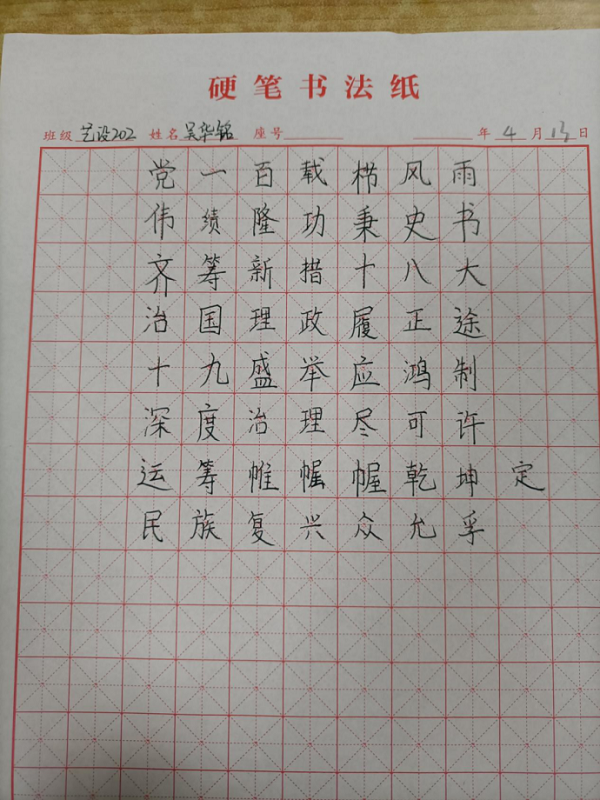 硬笔书法纸
班级 艺设202 姓名 吴华铭 座号 年 4 月 13 日
党一百载栉风雨
伟绩隆功秉史书
齐筹新措十八大
治国理政履正途
十九盛举应鸿制
深度治理尽可许
运筹帷幄幄乾坤定
民族复兴众允孚